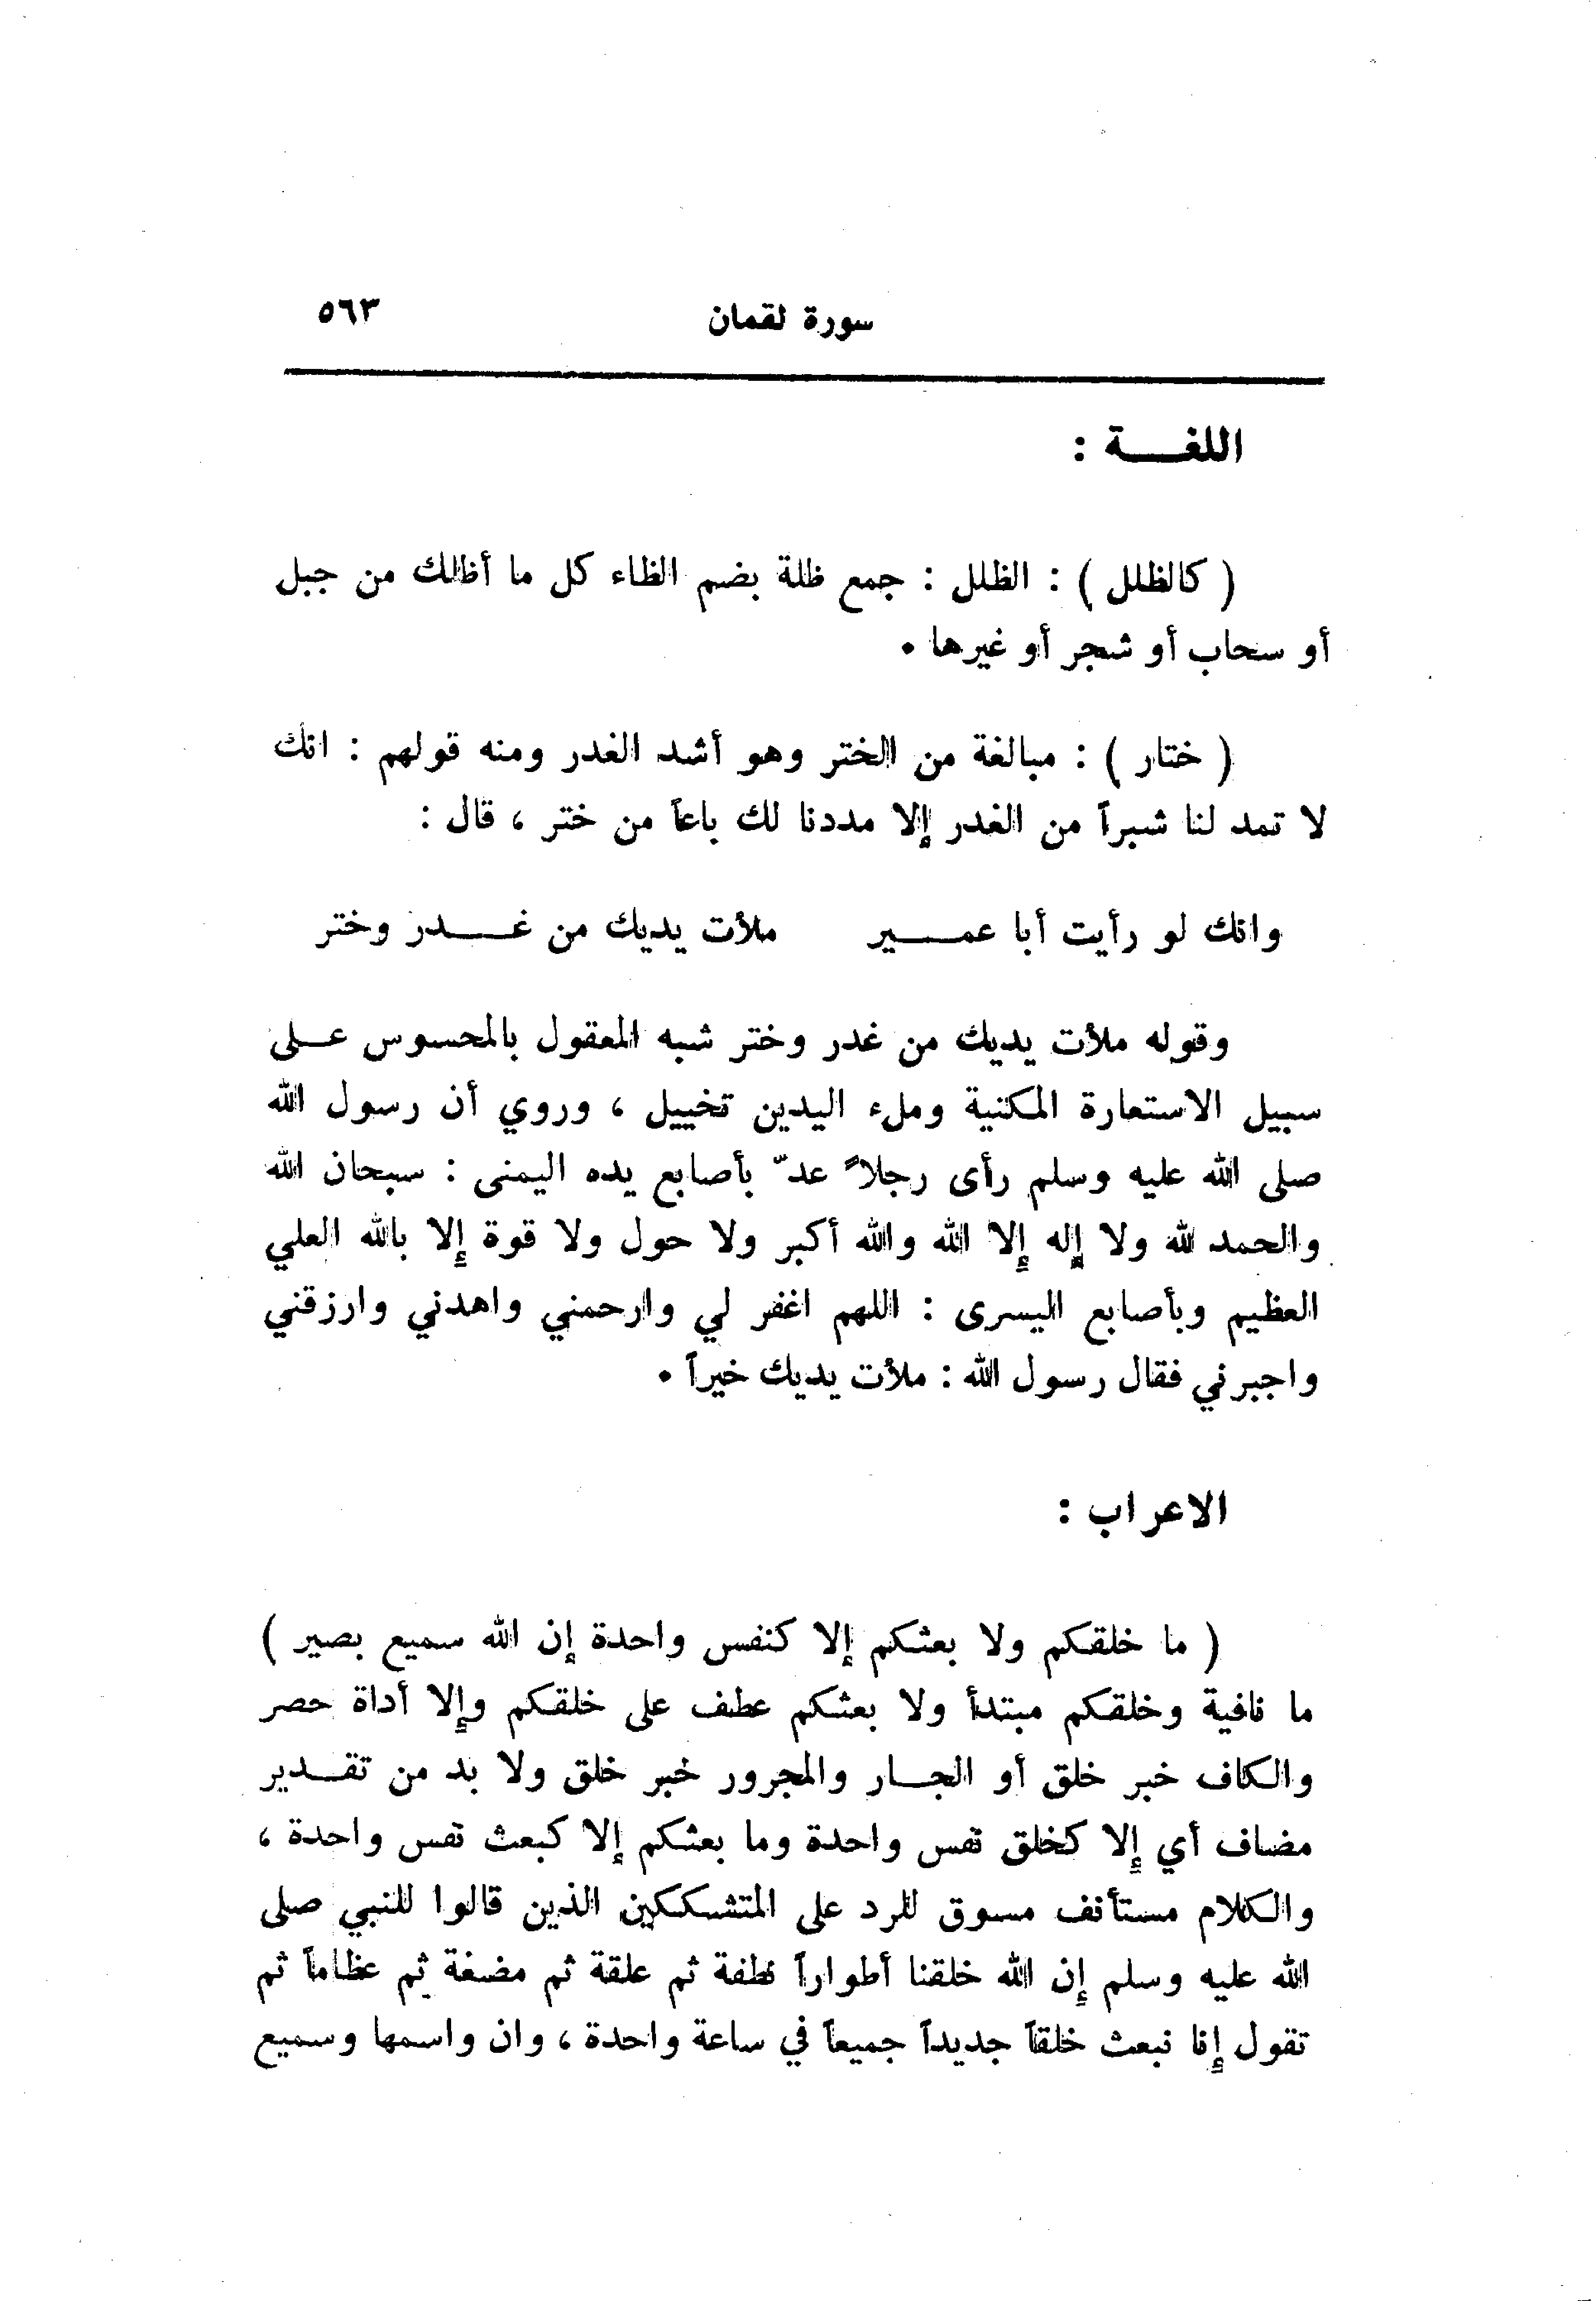 سورة لقمان ٥٦٣
اللغــــة :
( كالظلل ) : الظلل : جمع ظلة بضم الظاء كل ما أظلك من جبل
أو سحاب أو شجر أو غيرها .
( ختار ) : مبالغة من الختر وهو أشد الغدر ومنه قولهم : انك
لا تمد لنا شبراً من الغدر إلا مددنا لك باعاً من ختر ، قال :
وانك لو رأيت أبا عمــــير ملأت يديك من غــــدر وختر
وقوله ملأت يديك من غدر وختر شبه المعقول بالمحسوس عــلى
سبيل الاستعارة المكنية وملء اليدين تخييل ، وروي أن رسول الله
صلى الله عليه وسلم رأى رجلاً عدّ بأصابع يده اليمنى : سبحان الله
والحمد لله ولا إله إلا الله والله أكبر ولا حول ولا قوة إلا بالله العلي
العظيم وبأصابع اليسرى : اللهم اغفر لي وارحمني واهدني وارزقني
واجبرني فقال رسول الله : ملأت يديك خيراً .
الاعراب :
( ما خلقكم ولا بعثكم إلا كنفس واحدة إن الله سميع بصير )
ما نافية وخلقكم مبتدأ ولا بعثكم عطف على خلقكم وإلا أداة حصر
والكاف خبر خلق أو الجــار والمجرور خبر خلق ولا بد من تقــدير
مضاف أي إلا كخلق نفس واحدة وما بعثكم إلا كبعث نفس واحدة ،
والكلام مستأنف مسوق للرد على المتشككين الذين قالوا للنبي صلى
الله عليه وسلم إن الله خلقنا أطواراً نطفة ثم علقة ثم مضغة ثم عظاماً ثم
تقول إنا نبعث خلقاً جديداً جميعاً في ساعة واحدة ، وان واسمها وسميع